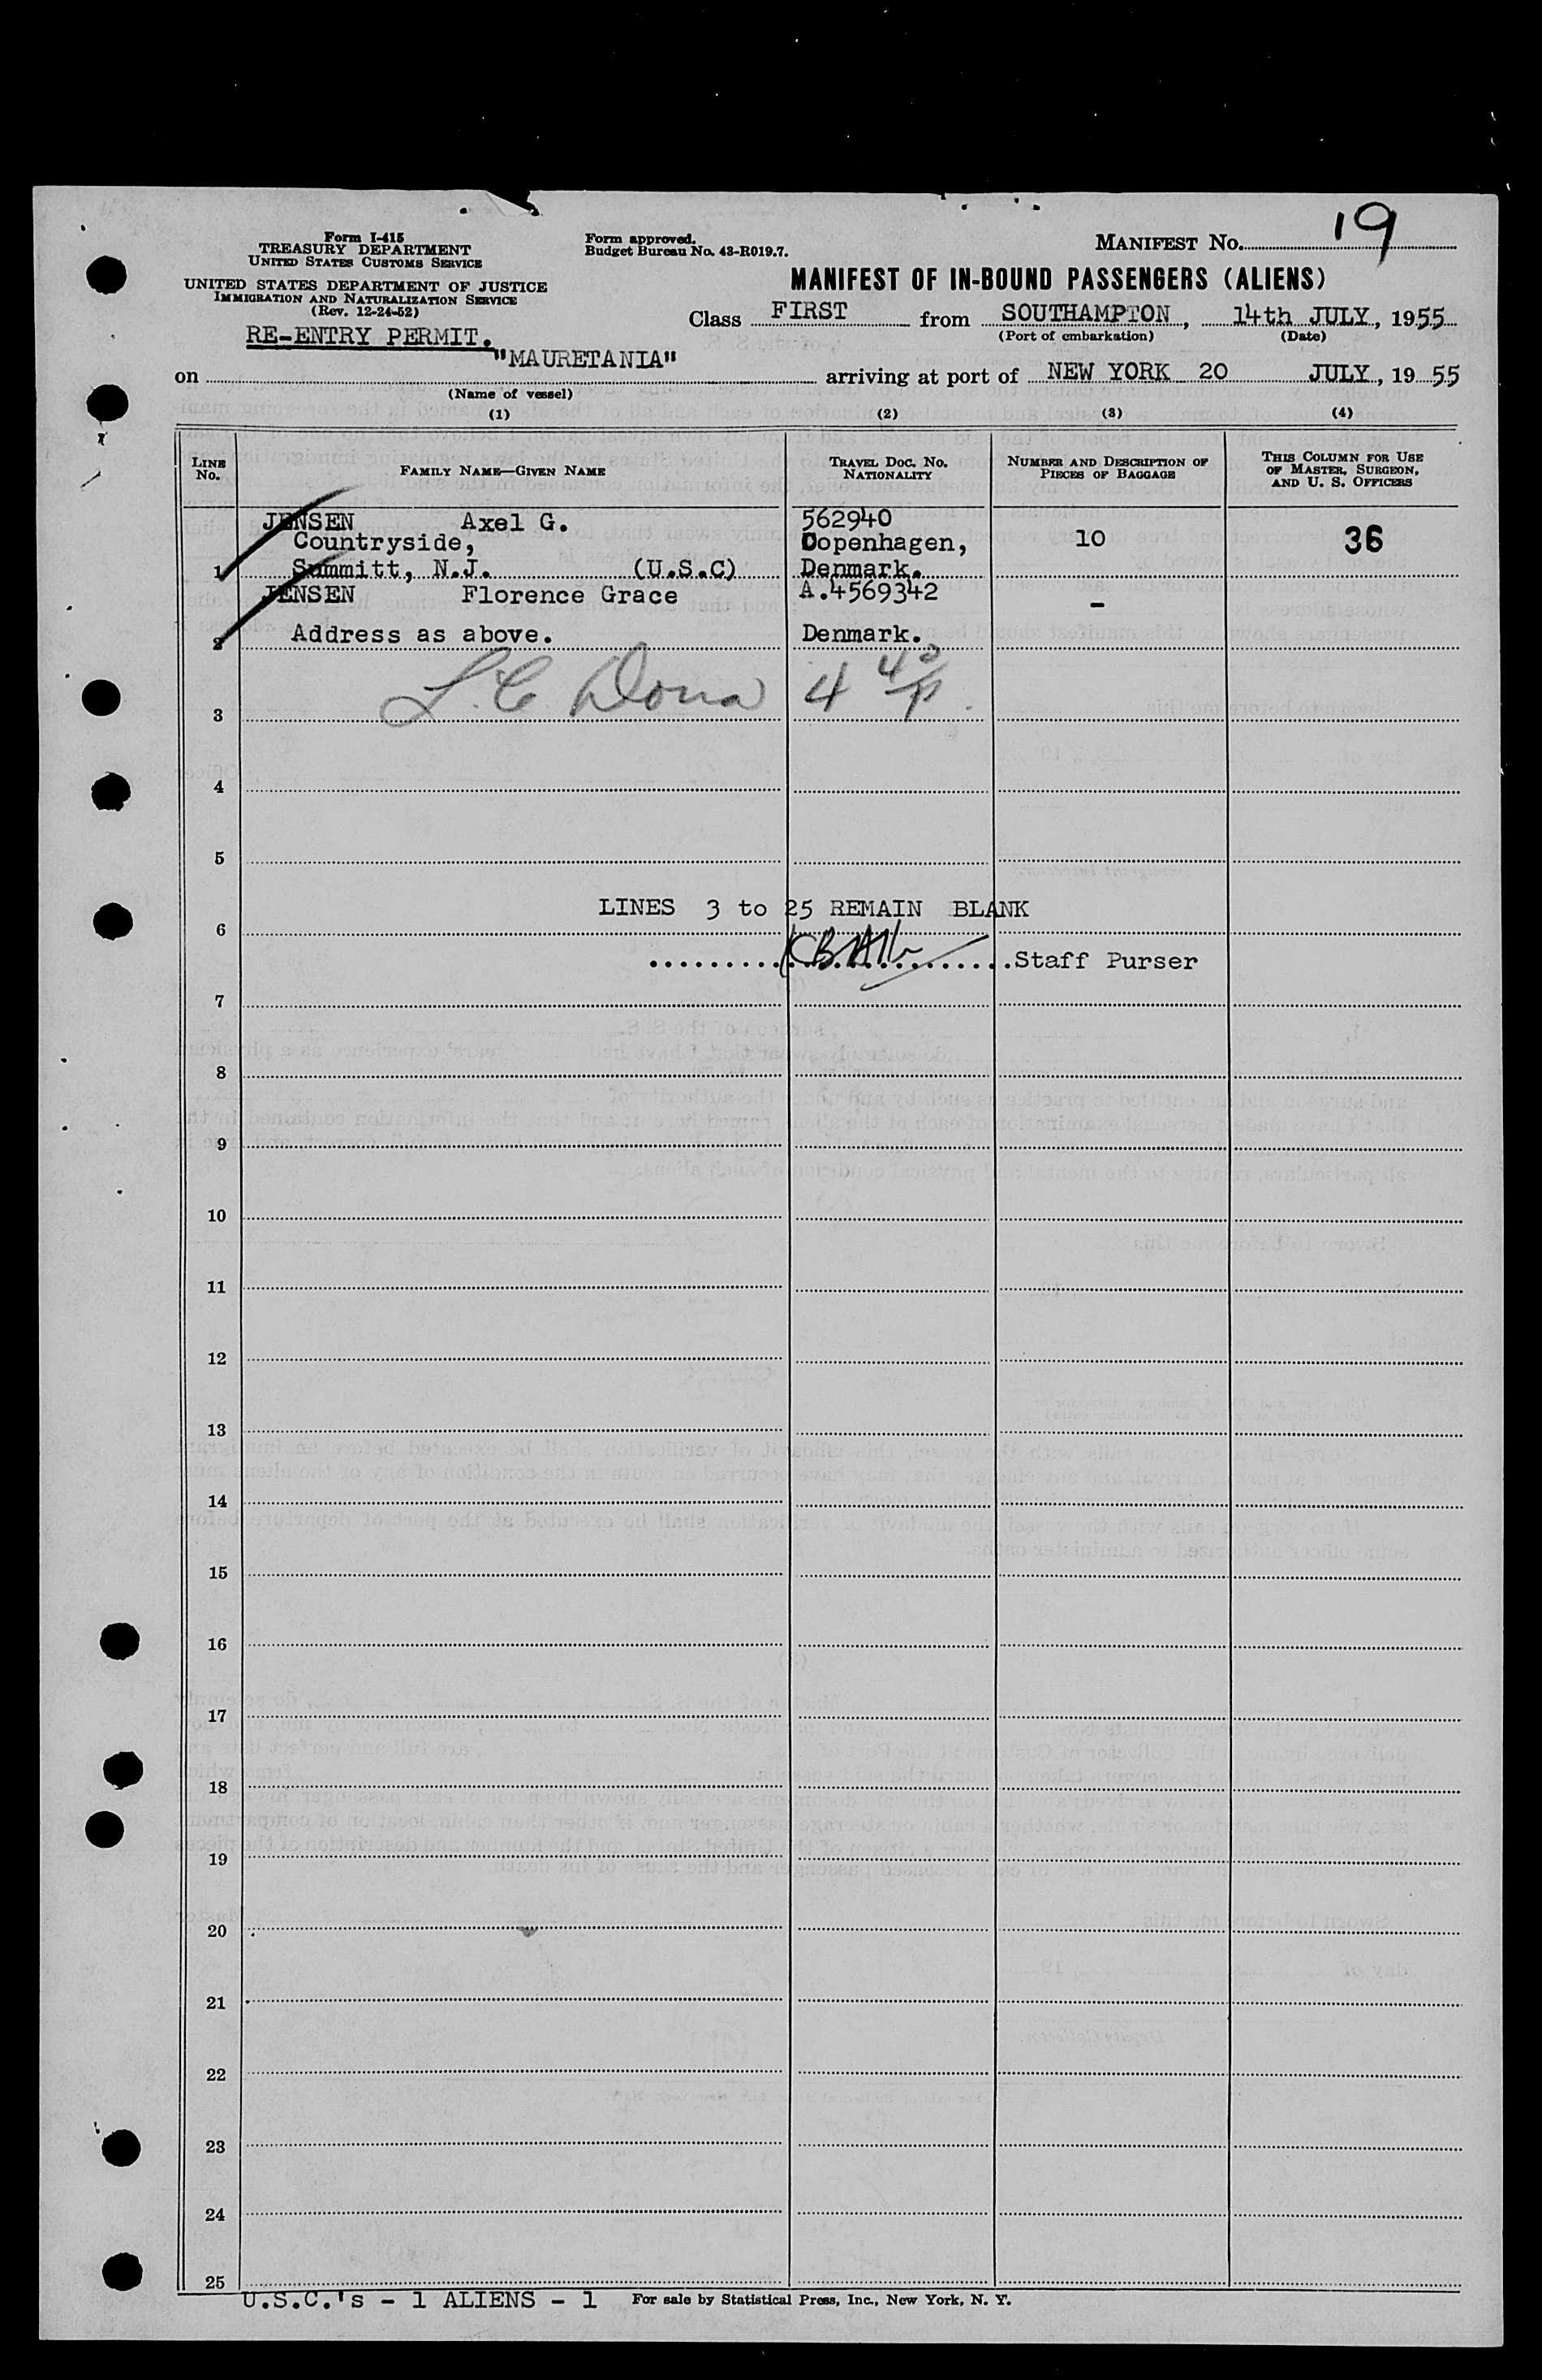 Form I-415
TREASURY DEPARTMENT
UNITED STATES CUSTOMS SERVICE
UNITED STATES DEPARTMENT OF JUSTICE
IMMIGRATION AND NATURALIZATION SERVICE
(Rev. 12-24-52)
RE-ENTRY PERMIT.
Form approved.
Budget Bureau No. 43-R019.7.
MANIFEST NO. 19
MANIFEST OF IN-BOUND PASSENGERS (ALIENS)
Class FIRST from SOUTHAMPTON, 14th JULY, 1955
(Port of embarkation) (Date)
on "MAURETANIA" arriving at port of NEW YORK 20 JULY, 19 55
(Name of vessel)
(1) (2) (3) (4)
LINE NO. FAMILY NAME—GIVEN NAME TRAVEL DOC. NO. NATIONALITY NUMBER AND DESCRIPTION OF PIECES OF BAGGAGE THIS COLUMN FOR USE OF MASTER, SURGEON, AND U. S. OFFICERS
JENSEN Axel G. 562940
Countryside, Copenhagen, 10 36
1 Summitt, N.J. (U.S.C) Denmark.
JENSEN Florence Grace A.4569342 -
2 Address as above. Denmark.
3
4
5
LINES 3 to 25 REMAIN BLANK
6
Staff Purser
7
8
9
10
11
12
13
14
15
16
17
18
19
20
21
22
23
24
25
U.S.C.'s - 1 ALIENS - 1 For sale by Statistical Press, Inc., New York, N. Y.